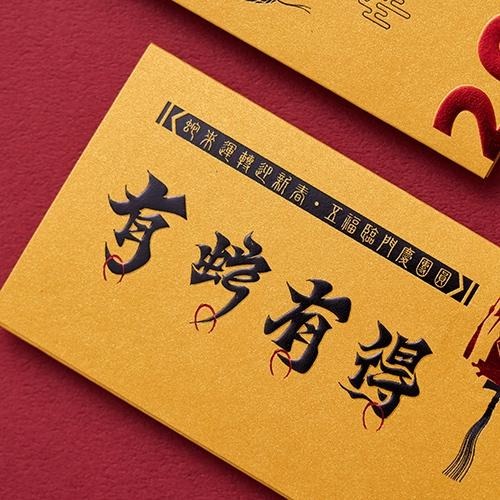 蛇來運轉迎新春·五福臨門慶團圓
有蛇有得
2